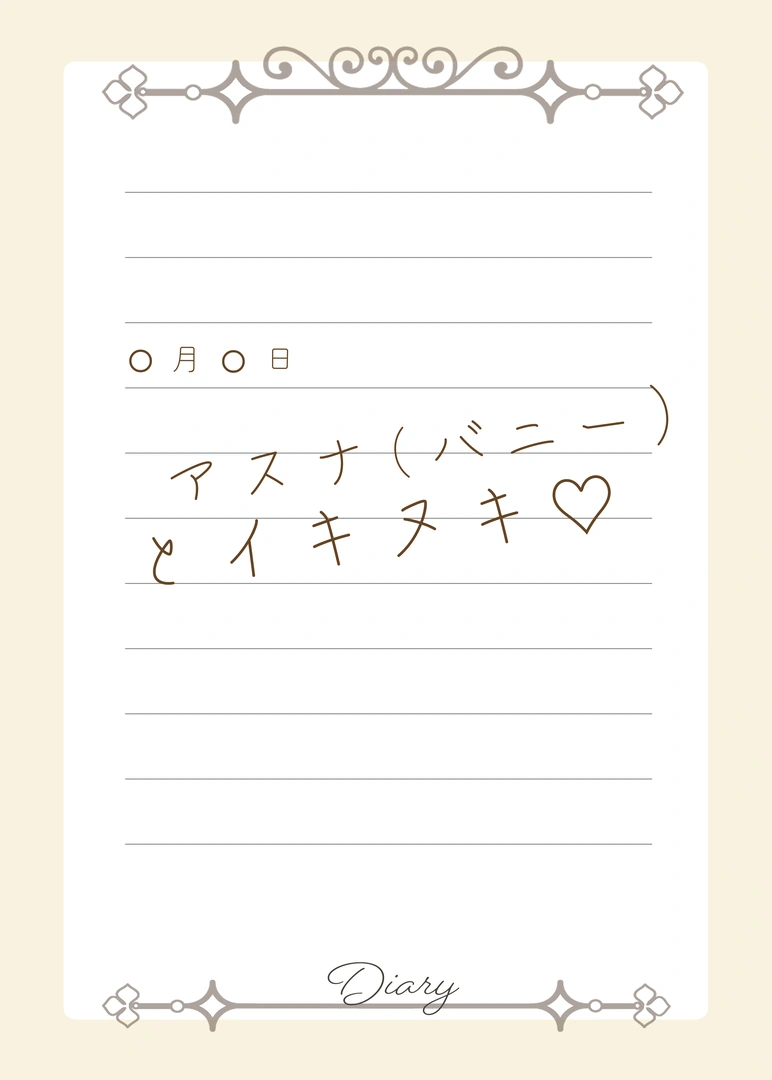 〇月〇日
アスナ(バニー)
とイキヌキ♡
Diary